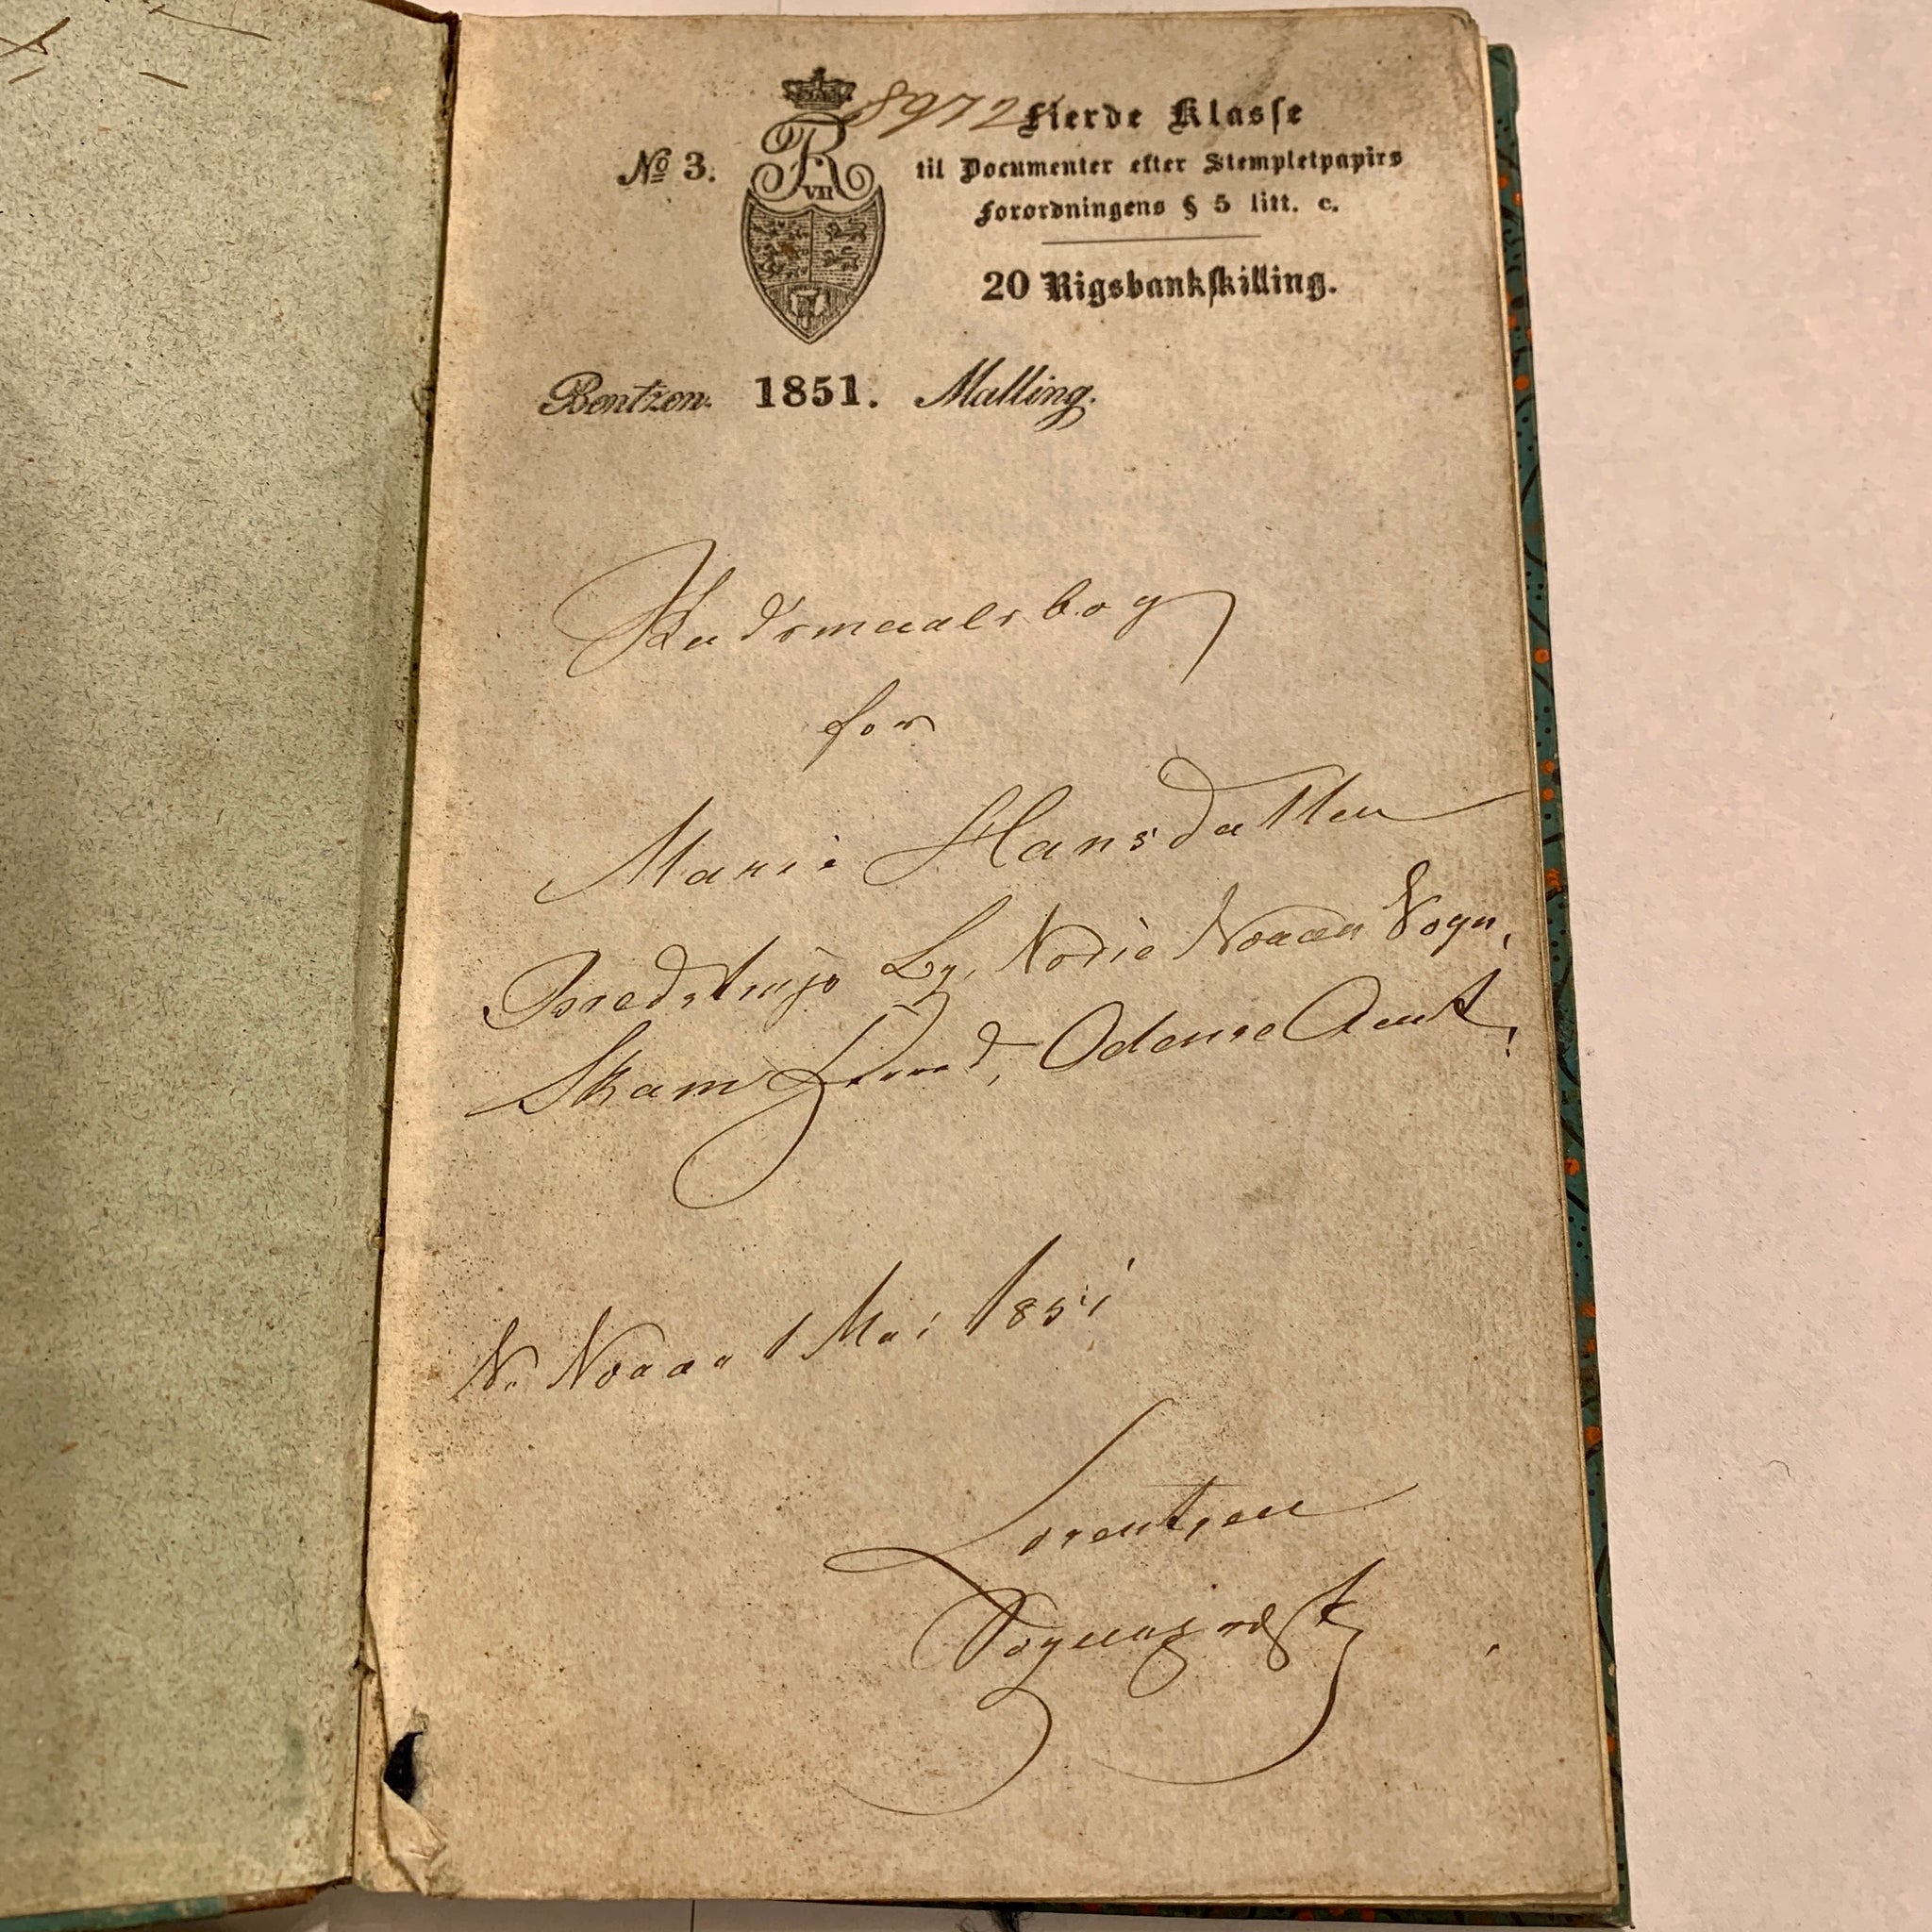 8972
Fierde Klasse
№ 3.
FR VII
til Documenter efter Stempletpapirs
Forordningens § 5 litt. c.
20 Rigsbankskilling.
Bentzen. 1851. Malling.
Skudsmaalsbog
for
Marie Hansdatter
By, Nørre Sogn,
Skam Herred, Odense Amt.
N. 1 Mai 1851
Lorentzen
Sognepræst